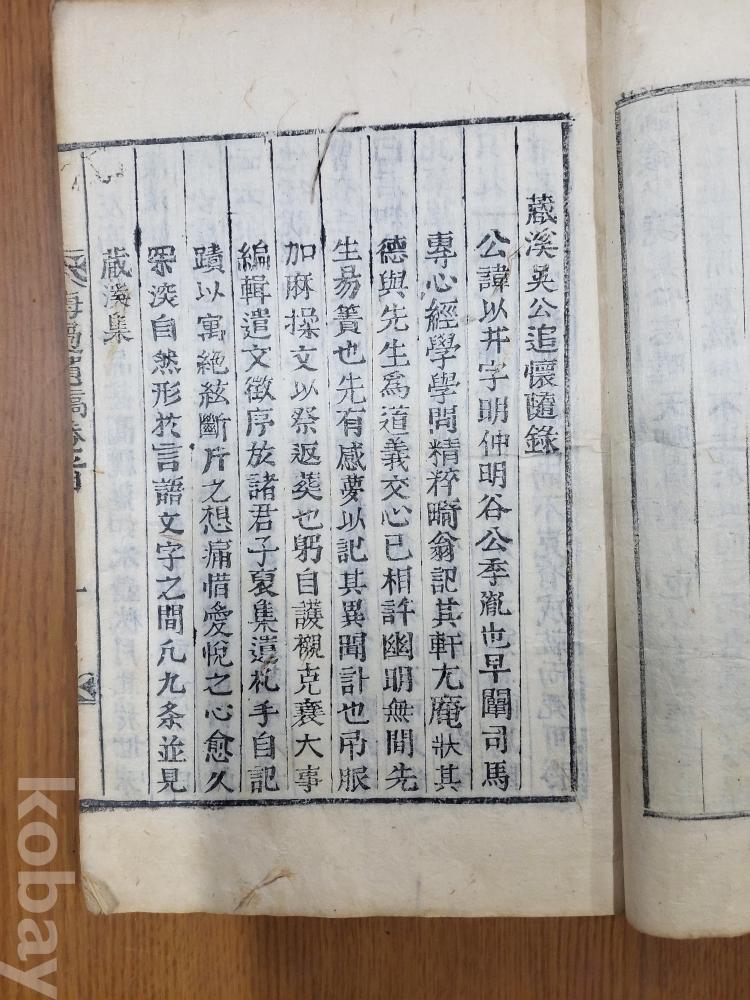 葳溪吳公追懷隨錄
公諱以井字明仲明谷公季胤也早闡司馬
專心經學學問精粹畸翁記其軒尤庵狀其
德與先生爲道義交心已相許幽明無間先
生易簀也先有感夢以記其異聞訃也吊服
加麻操文以祭返葬也躬自護櫬克襄大事
編輯遺文徵序於諸君子裒集遺札手自記
蹟以寓絶絃斷片之想痛惜愛悅之心愈久
罙淡自然形於言語文字之間凡九条並見
葳溪集
kobay